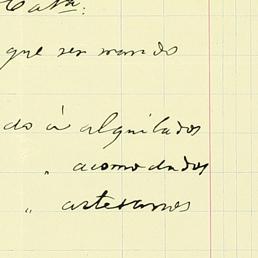 que ser mando
do á alquilados
" acomodados
" artesanos